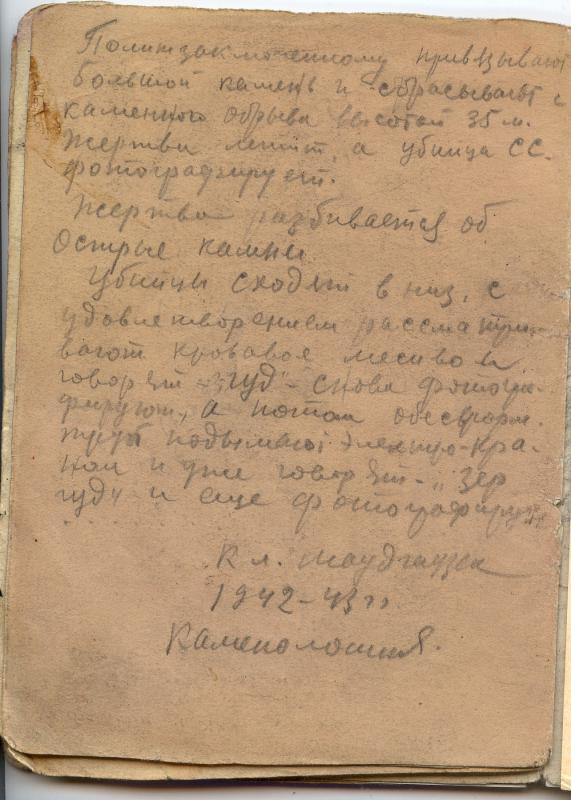 Политзаключенному привязывают
большой камень и сбрасывают с
каменного обрыва высотой 35 м.
Жертва летит, а убийца СС.
фотографирует.
Жертва разбивается об
Острые камни
Убийцы сходят в низ, с
удовлетворением рассматри-
вают кровавое месиво и
говорят "гуд" - снова фотогра-
фируют, а потом обесформ.
труп подымают электро-кра-
ном и уже говорят - "зер
гуд" и еще фотографируют
...
К л. Маудгаузен
1942-43 гг
Каменоломня.